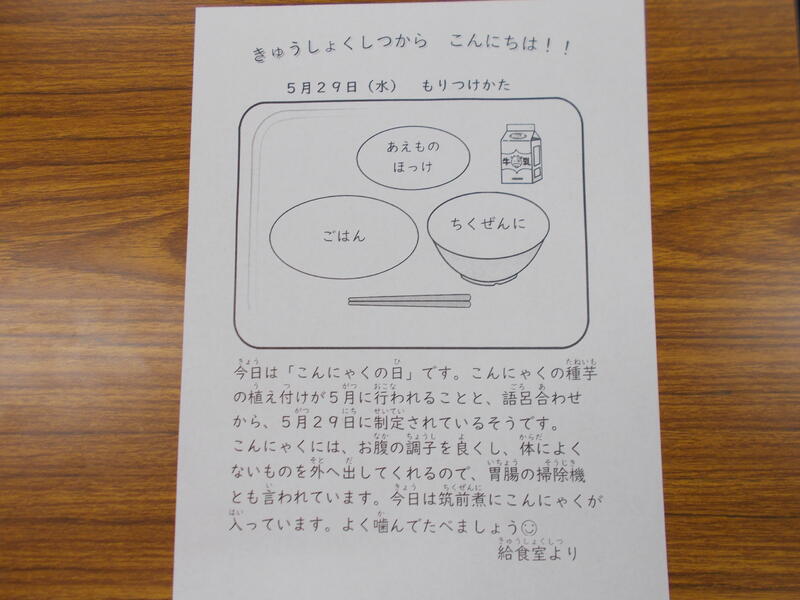 きゅうしょくしつから　こんにちは！！
５月２９日（水）　もりつけかた
あえもの
ほっけ
牛乳
ごはん
ちくぜんに
今日は「こんにゃくの日」です。こんにゃくの種芋
の植え付けが５月に行われることと、語呂合わせ
から、５月２９日に制定されているそうです。
こんにゃくには、お腹の調子を良くし、体によく
ないものを外へ出してくれるので、胃腸の掃除機
とも言われています。今日は筑前煮にこんにゃくが
入っています。よく噛んでたべましょう☺
給食室より